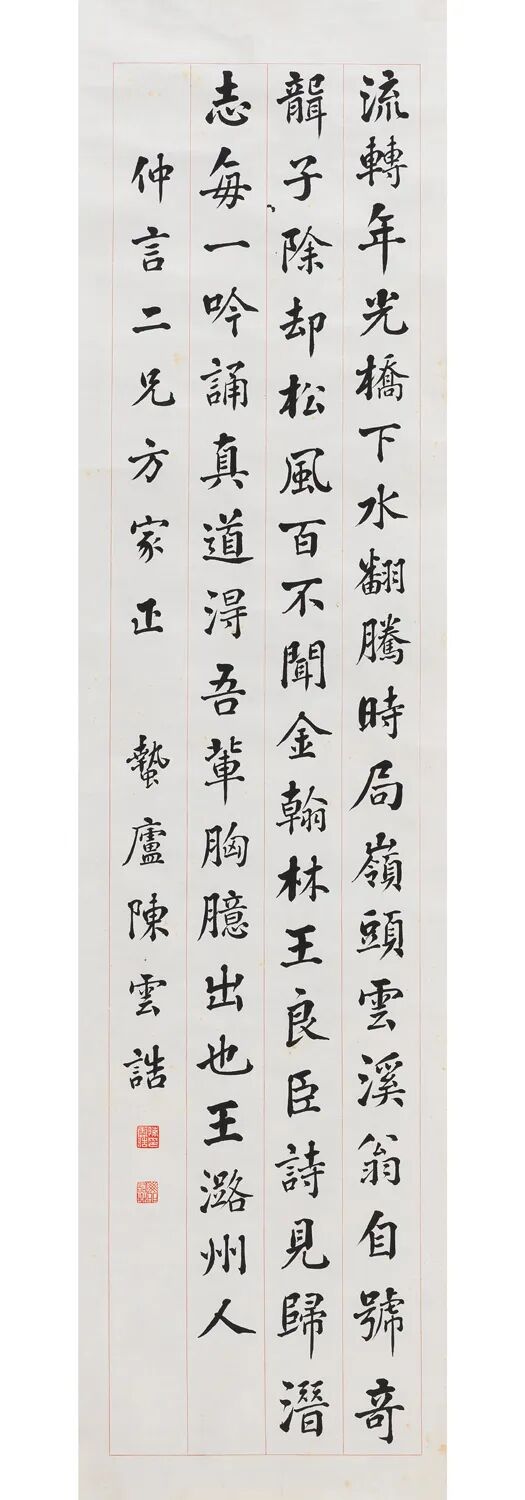 流轉年光橋下水翻騰時局嶺頭雲溪翁自號奇
聱子除却松風百不聞金翰林王良臣詩見歸潛
志每一吟誦真道淂吾輩胸臆出也王潞州人
仲言二兄方家正 蟄廬陳雲誥